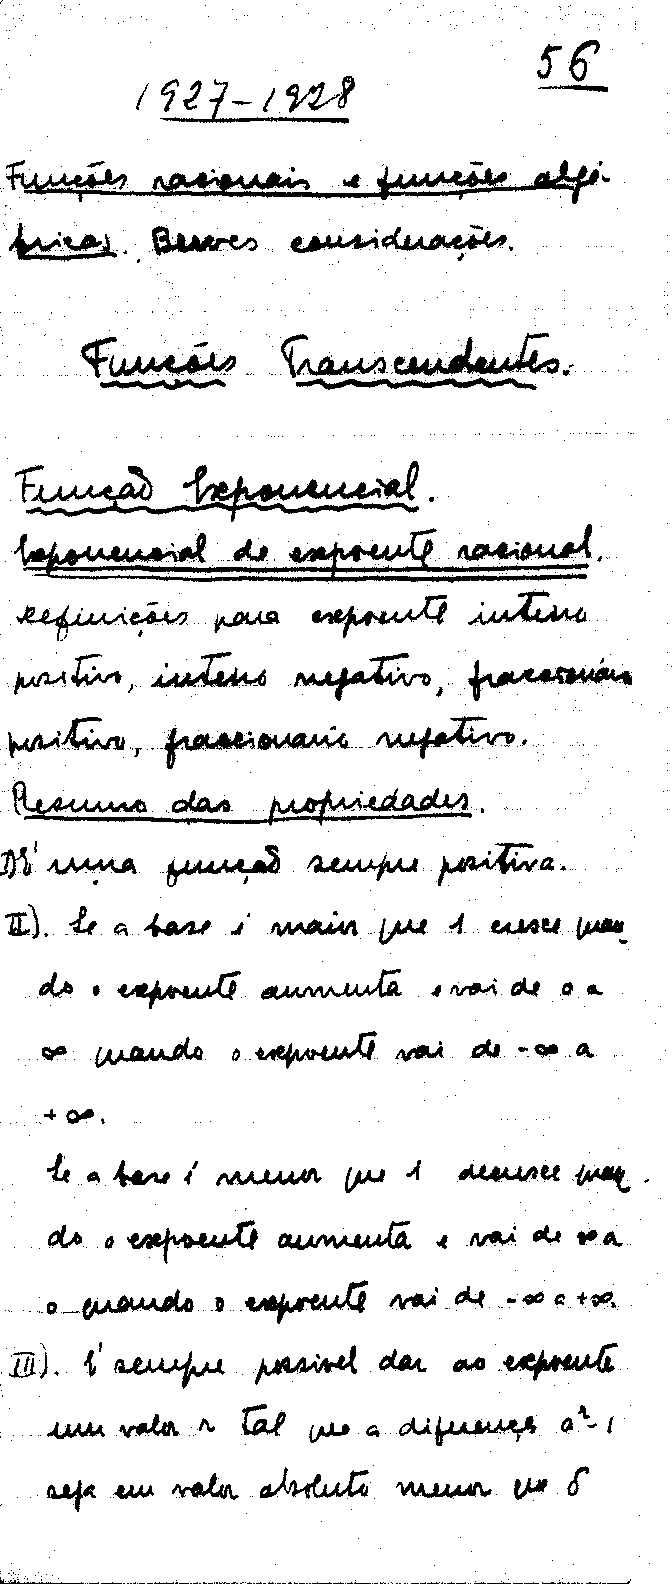 56
1927-1928
Funções racionais e funções algé-
bricas. Breves considerações.
Funções Transcendentes.
Função Exponencial.
Exponencial de expoente racional.
Definições para expoente inteiro
positivo, inteiro negativo, fraccionário
positivo, fraccionario negativo.
Resumo das propriedades.
I) E' uma função sempre positiva.
II). Se a base é maior que 1 cresce quan-
do o expoente aumenta e vai de 0 a
∞ quando o expoente vai de -∞ a
+∞.
Se a base é menor que 1 decresce quan-
do o expoente aumenta e vai de ∞ a
0 quando o expoente vai de -∞ a +∞.
III). E' sempre possivel dar ao expoente
um valor r tal que a diferença aʳ-1
seja em valor absoluto menor que δ